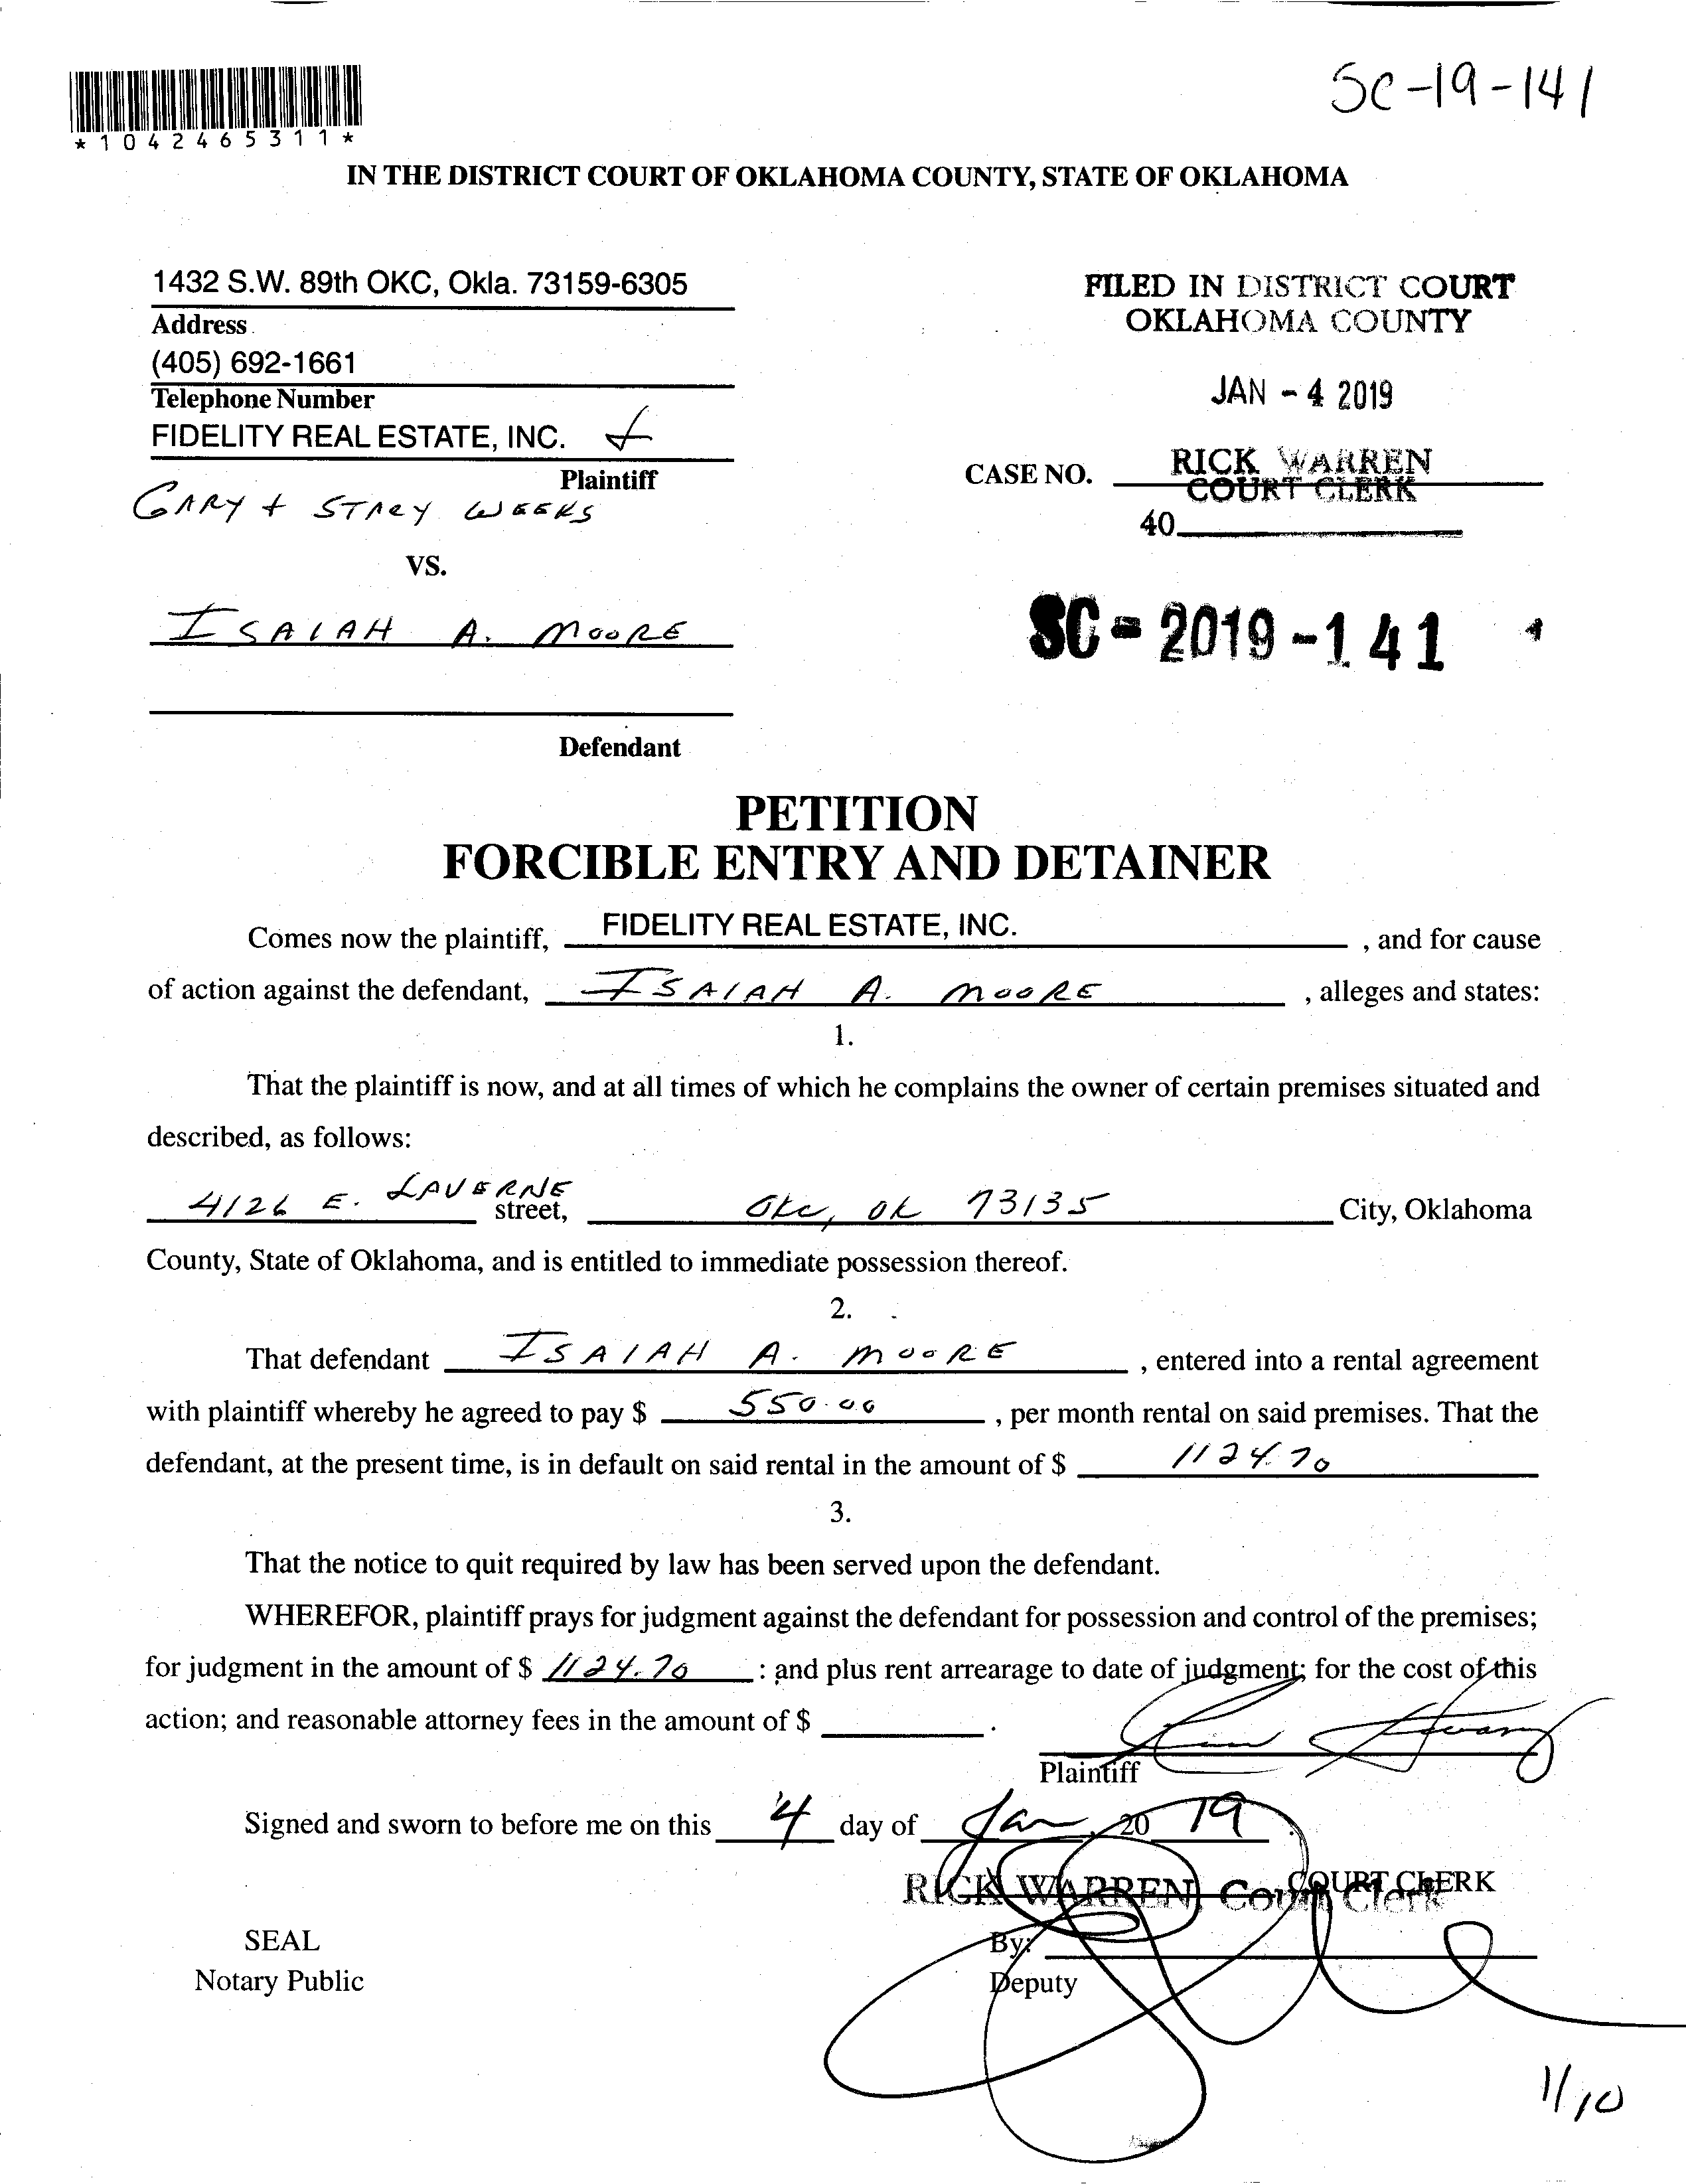 SC-19-141
*1042465311*
IN THE DISTRICT COURT OF OKLAHOMA COUNTY, STATE OF OKLAHOMA
1432 S.W. 89th OKC, Okla. 73159-6305
Address
(405) 692-1661
Telephone Number
FIDELITY REAL ESTATE, INC. +
Plaintiff
GARY + STACY WEEKS
VS.
ISAIAH A. MOORE
Defendant
FILED IN DISTRICT COURT
OKLAHOMA COUNTY
JAN - 4 2019
RICK WARREN
CASE NO.
COURT CLERK
40
SC - 2019 - 141
PETITION
FORCIBLE ENTRY AND DETAINER
Comes now the plaintiff, FIDELITY REAL ESTATE, INC. , and for cause
of action against the defendant, ISAIAH A. MOORE , alleges and states:
1.
That the plaintiff is now, and at all times of which he complains the owner of certain premises situated and
described, as follows:
4126 E. LAVERNE street, OKC, OK 73135 City, Oklahoma
County, State of Oklahoma, and is entitled to immediate possession thereof.
2.
That defendant ISAIAH A. MOORE , entered into a rental agreement
with plaintiff whereby he agreed to pay $ 550.00 , per month rental on said premises. That the
defendant, at the present time, is in default on said rental in the amount of $ 1124.70
3.
That the notice to quit required by law has been served upon the defendant.
WHEREFOR, plaintiff prays for judgment against the defendant for possession and control of the premises;
for judgment in the amount of $ 1124.70 : and plus rent arrearage to date of judgment; for the cost of this
action; and reasonable attorney fees in the amount of $ .
Plaintiff
Signed and sworn to before me on this 4 day of Jan , 20 19 .
RICK WARREN, Court Clerk COURT CLERK
SEAL
By:
Notary Public
Deputy
1/10